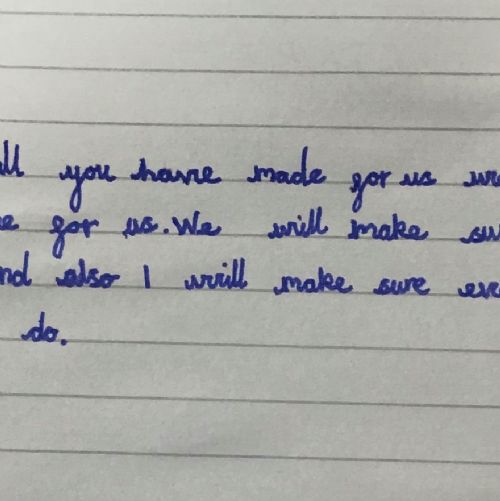 all you have made for us
for us. We will make
and also I will make sure
do.